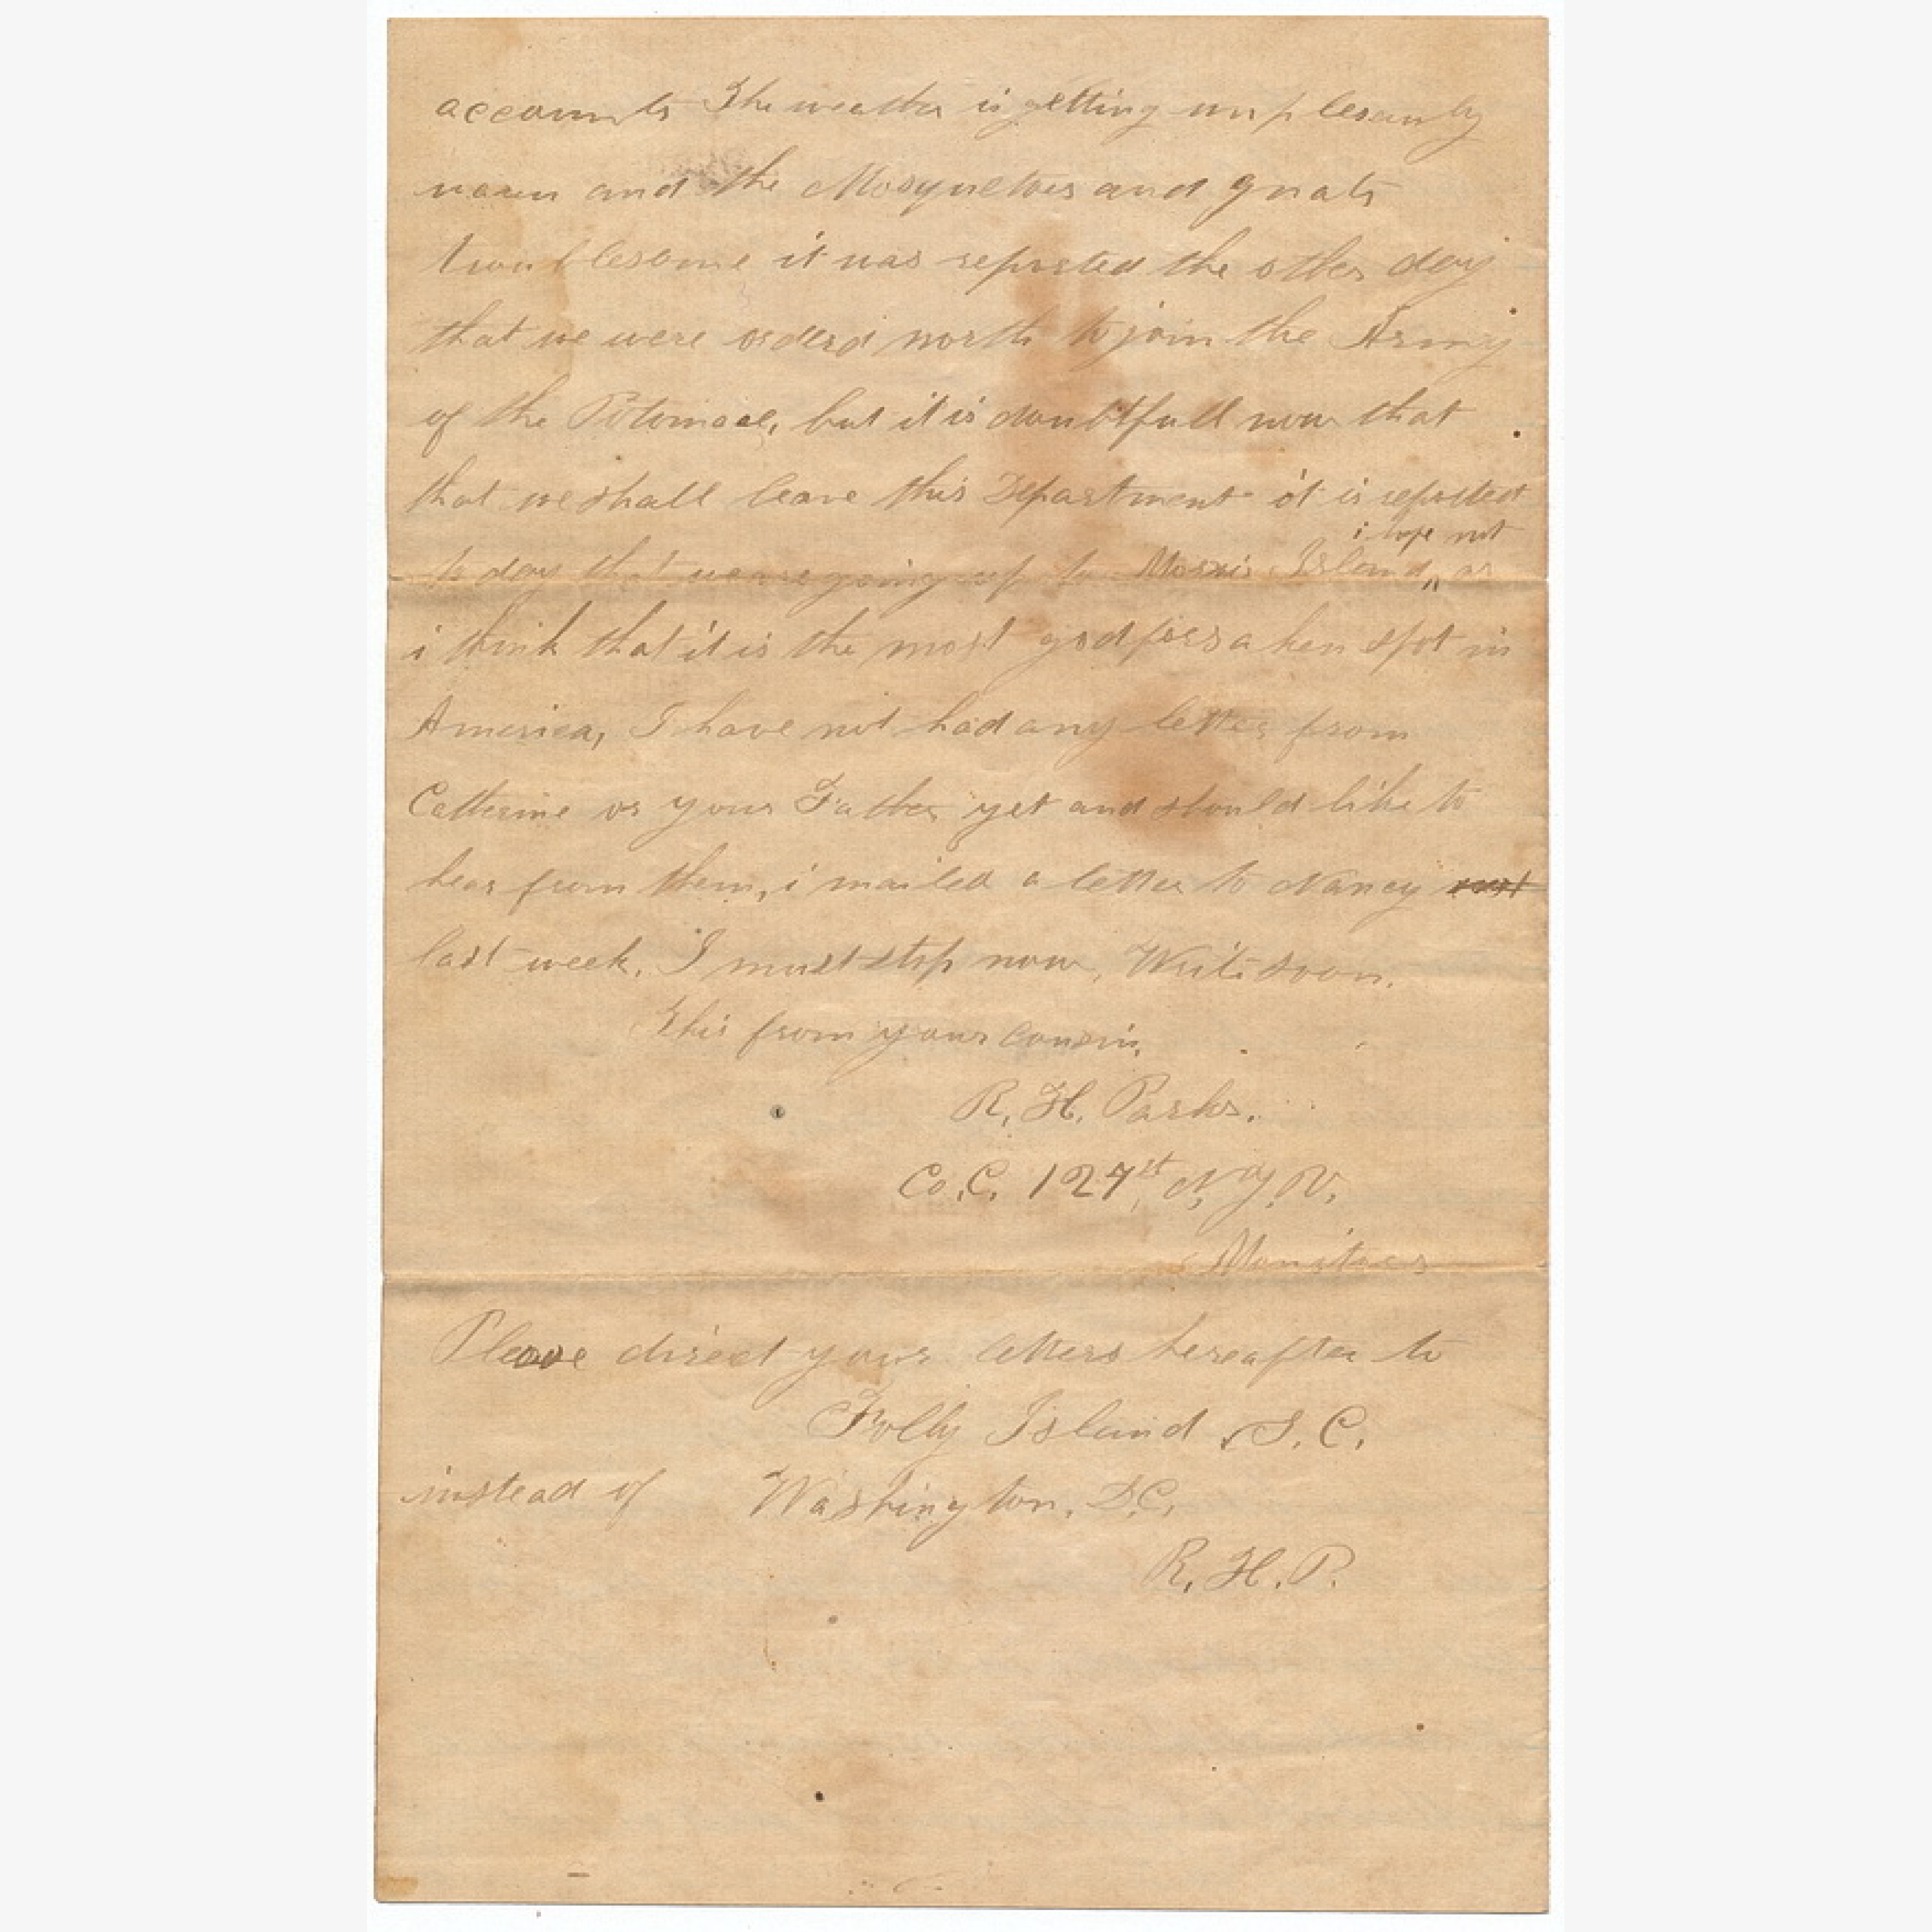 accounts The weather is getting unplesantly
warm and the Mosquetoes and gnats
troublesome it was reported the other day
that we were orderd north to join the Army
of the Potomac, but it is doubtfull now that
that we shall leave this Department it is reported
i hope not
to day that we are going up to Morris Island, as
i think that it is the most godforsaken spot in
America, I have not had any letter from
Catherine or your Father yet and should like to
hear from them, i mailed a letter to Nancy
last week. I must stop now. Write soon.
This from your Cousin,
R. H. Parks.
Co. C. 127st N. Y. V.
Monitors
Please direct your letters hereafter to
Folly Island, S. C.
instead of Washington, D.C.
R. H. P.